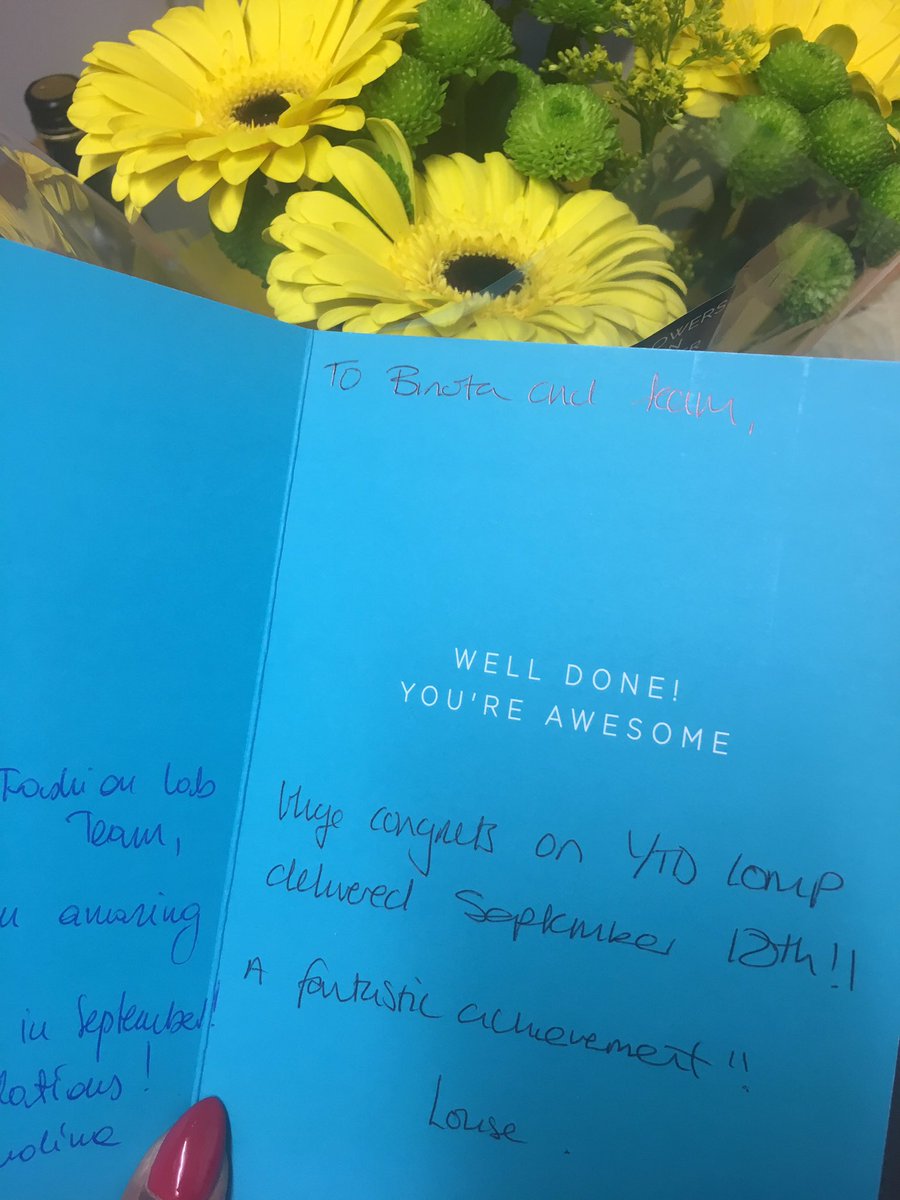 OWERS
TO Binota and team,
WELL DONE!
YOU'RE AWESOME
Huge congrats on Y/TD comp
delivered September 12th!!
A fantastic achievement!!
Louise.
Fashion Lab
Team,
amazing
in September!
lations!